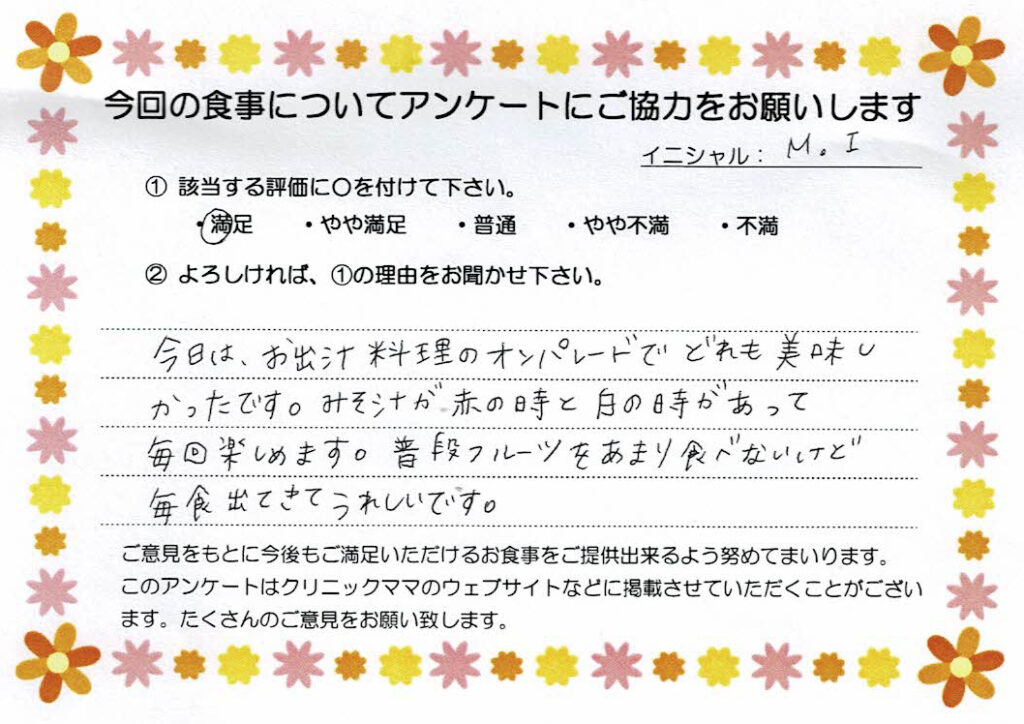 今回の食事についてアンケートにご協力をお願いします
イニシャル： M. I
① 該当する評価に○を付けて下さい。
・満足 ・やや満足 ・普通 ・やや不満 ・不満
② よろしければ、①の理由をお聞かせ下さい。
今日は、お出汁料理のオンパレードでどれも美味し
かったです。みそ汁が赤の時と白の時があって
毎回楽しめます。普段フルーツをあまり食べないけど
毎食出てきてうれしいです。
ご意見をもとに今後もご満足いただけるお食事をご提供出来るよう努めてまいります。
このアンケートはクリニックママのウェブサイトなどに掲載させていただくことがござい
ます。たくさんのご意見をお願い致します。